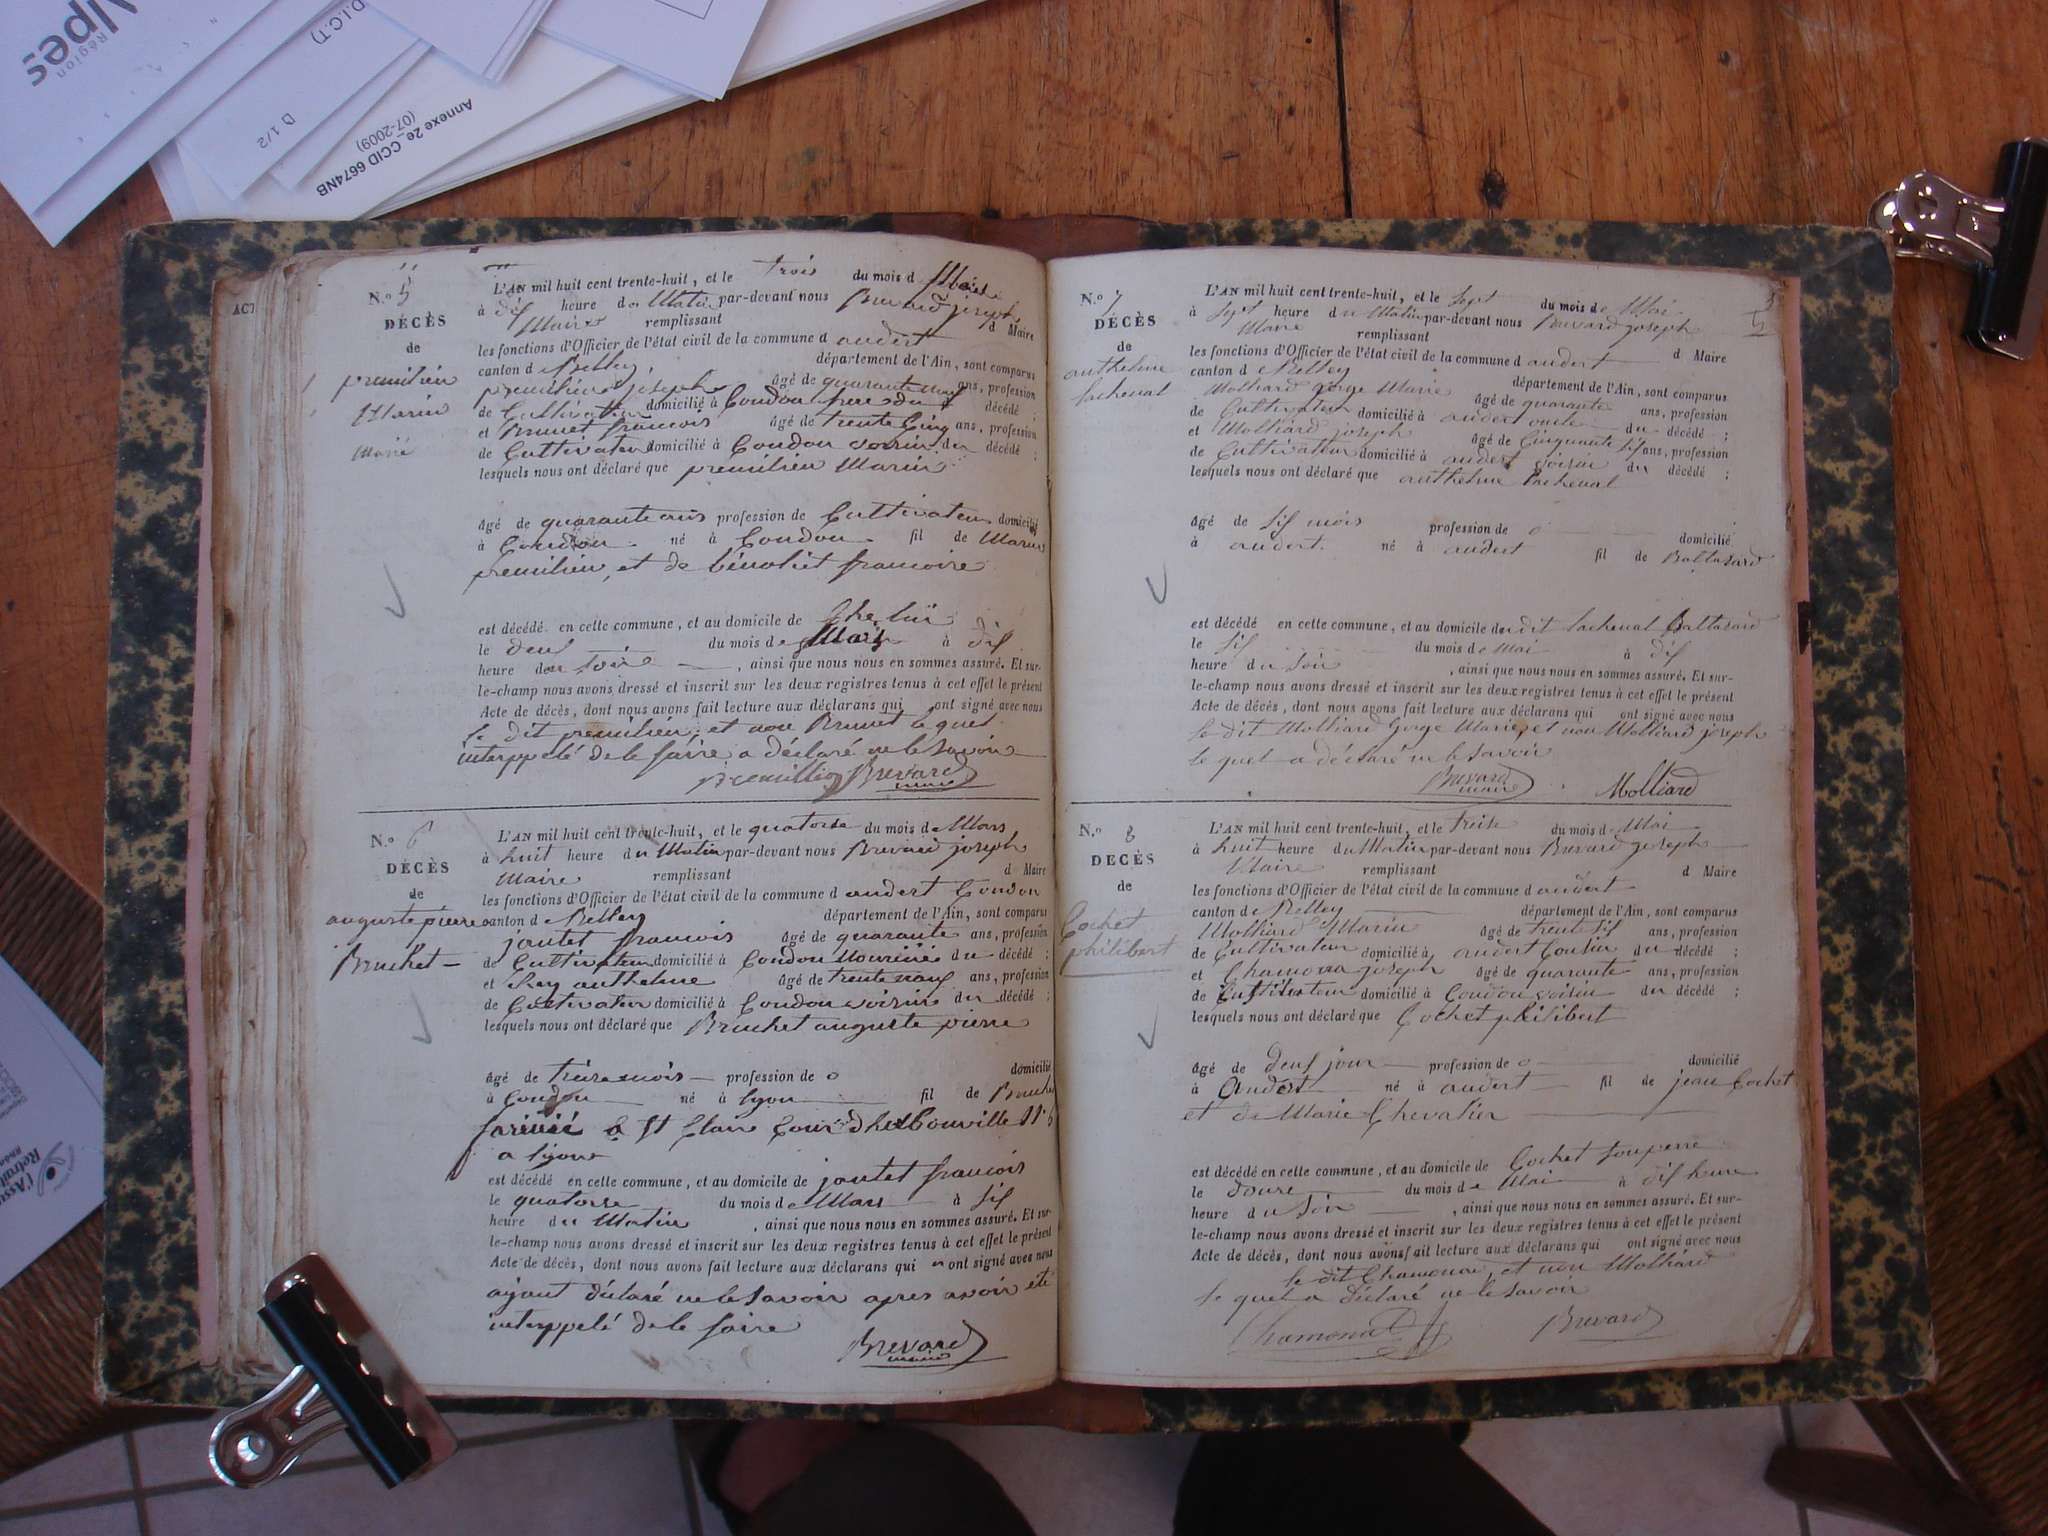 Alpes
Région
D.I.C.T)
D 1/2
Annexe 2e_CCID 6674NB
(07-2009)
ACT
N.o 5
DÉCÈS
de
premilieu
Marin
Marié
L'AN mil huit cent trente-huit, et le trois du mois d
à dix heure du Matin par-devant nous Brevard joseph
Maire remplissant d Maire
les fonctions d'Officier de l'état civil de la commune d andert
canton de Belley département de l'Ain, sont comparus
premilieu joseph âgé de quarante neuf ans, profession
de Cultivateur domicilié à Condon frere du décédé ;
et Brunet francois âgé de trente Cinq ans, profession
de Cultivateur domicilié à Condon voisin du décédé ;
lesquels nous ont déclaré que premilieu Marin
âgé de quarante profession de Cultivateur domicilié
à Condon né à Condon fil de Marin
premilieu et de bénoliet francoise
est décédé en cette commune, et au domicile de Chez lui
le deux du mois de à dix
heure du soire, ainsi que nous nous en sommes assuré. Et sur-
le-champ nous avons dressé et inscrit sur les deux registres tenus à cet effet le présent
Acte de décès, dont nous avons fait lecture aux déclarans qui ont signé avec nous
le dit premilieu et non Brunet le quel
interppelé de le faire a déclaré ne le savoir
premillieu Brevard
maire
N.o 6
DÉCÈS
de
auguste pierre
Bruchet
L'AN mil huit cent trente-huit, et le quatorse du mois de Mars
à huit heure du Matin par-devant nous Brevard joseph
Maire remplissant d Maire
les fonctions d'Officier de l'état civil de la commune d andert Condon
canton de Belley département de l'Ain, sont comparus
joutet francois âgé de quarante ans, profession
de Cultivateur domicilié à Condon du décédé ;
et Rey anthelme âgé de trente neuf ans, profession
de Cultivateur domicilié à Condon voisin du décédé ;
lesquels nous ont déclaré que Bruchet auguste pierre
âgé de treize mois profession de o domicilié
à Condon né à Lyon fil de Bruchet
a St Claire Cour d'herbouville N° 6
a Lyon
est décédé en cette commune, et au domicile de joutet francois
le quatorse du mois de Mars à six
heure du Matin, ainsi que nous nous en sommes assuré. Et sur-
le-champ nous avons dressé et inscrit sur les deux registres tenus à cet effet le présent
Acte de décès, dont nous avons fait lecture aux déclarans qui n ont signé avec nous
ayant déclaré ne le savoir apres avoir été
interppelé de le faire
Brevard
maire
N.o 7
DÉCÈS
de
anthelme
lacheval
L'AN mil huit cent trente-huit, et le sept du mois de Mai
à sept heure du Matin par-devant nous Brevard joseph
Maire remplissant d Maire
les fonctions d'Officier de l'état civil de la commune d andert
canton de Belley département de l'Ain, sont comparus
Molliard gorge Marie âgé de quarante ans, profession
de Cultivateur domicilié à andert oncle du décédé ;
et Molliard joseph âgé de Cinquante six ans, profession
de Cultivateur domicilié à andert voisin du décédé ;
lesquels nous ont déclaré que anthelme lacheval
âgé de six mois profession de o domicilié
à andert né à andert fil de Baltasard
est décédé en cette commune, et au domicile du dit lacheval Baltasard
le six du mois de mai à dix
heure du soir, ainsi que nous nous en sommes assuré. Et sur-
le-champ nous avons dressé et inscrit sur les deux registres tenus à cet effet le présent
Acte de décès, dont nous avons fait lecture aux déclarans qui ont signé avec nous
le dit Molliard gorge Marie, et non Molliard joseph
le quel a déclaré ne le savoir
Brevard
maire
Molliard
N.o 8
DÉCÈS
de
Cochet
philibert
L'AN mil huit cent trente-huit, et le treize du mois de Mai
à huit heure du Matin par-devant nous Brevard joseph
Maire remplissant d Maire
les fonctions d'Officier de l'état civil de la commune d andert
canton de Belley département de l'Ain, sont comparus
Molliard Marin âgé de trente six ans, profession
de Cultivateur domicilié à andert Cousin du décédé ;
et Chamona joseph âgé de quarante ans, profession
de Cultivateur domicilié à Condon voisin du décédé ;
lesquels nous ont déclaré que Cochet philibert
âgé de deux jour profession de o domicilié
à Andert né à andert fil de jean Cochet
et de Marie Chevalier
est décédé en cette commune, et au domicile de Cochet son pere
le douze du mois de Mai à dix heure
heure du soir, ainsi que nous nous en sommes assuré. Et sur-
le-champ nous avons dressé et inscrit sur les deux registres tenus à cet effet le présent
Acte de décès, dont nous avons fait lecture aux déclarans qui ont signé avec nous
le dit Chamona, et non Molliard
le quel a déclaré ne le savoir
Brevard